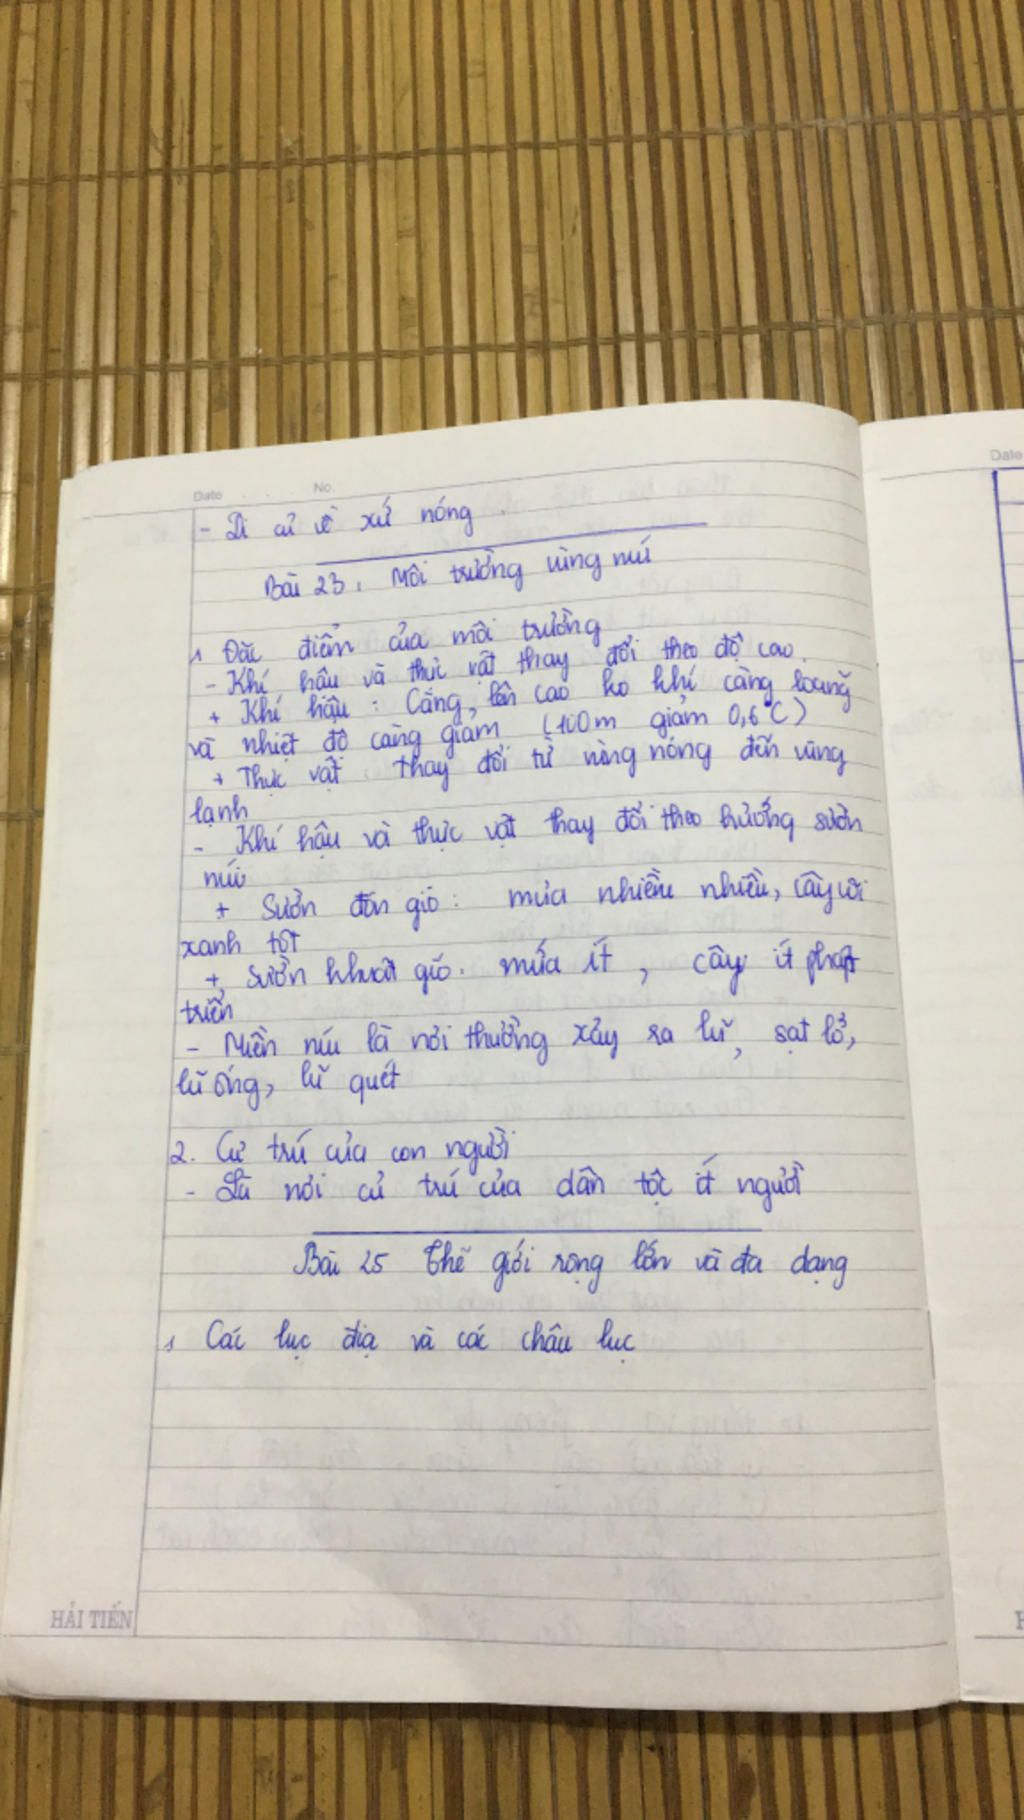 Date No.
- Di cư về xứ nóng
Bài 23. Môi trường vùng núi
1 Đặc điểm của môi trường
- Khí hậu và thực vật thay đổi theo độ cao.
+ Khí hậu : Càng lên cao ko khí càng loang
và nhiệt độ càng giảm (100m giảm 0,6°C)
+ Thực vật : thay đổi từ vùng nóng đến vùng
lạnh
- Khí hậu và thực vật thay đổi theo hướng sườn
núi
+ Sườn đón gió : mưa nhiều nhiều, cây cối
xanh tốt
+ Sườn khuất gió . mưa ít , cây ít phát
triển
- Miền núi là nơi thường xảy ra lũ, sạt lở,
lũ ống, lũ quét
2. Cư trú của con người
- Là nơi cư trú của dân tộc ít người
Bài 25 Thế giới rộng lớn và đa dạng
1 Các lục địa và các châu lục
HẢI TIẾN
Date